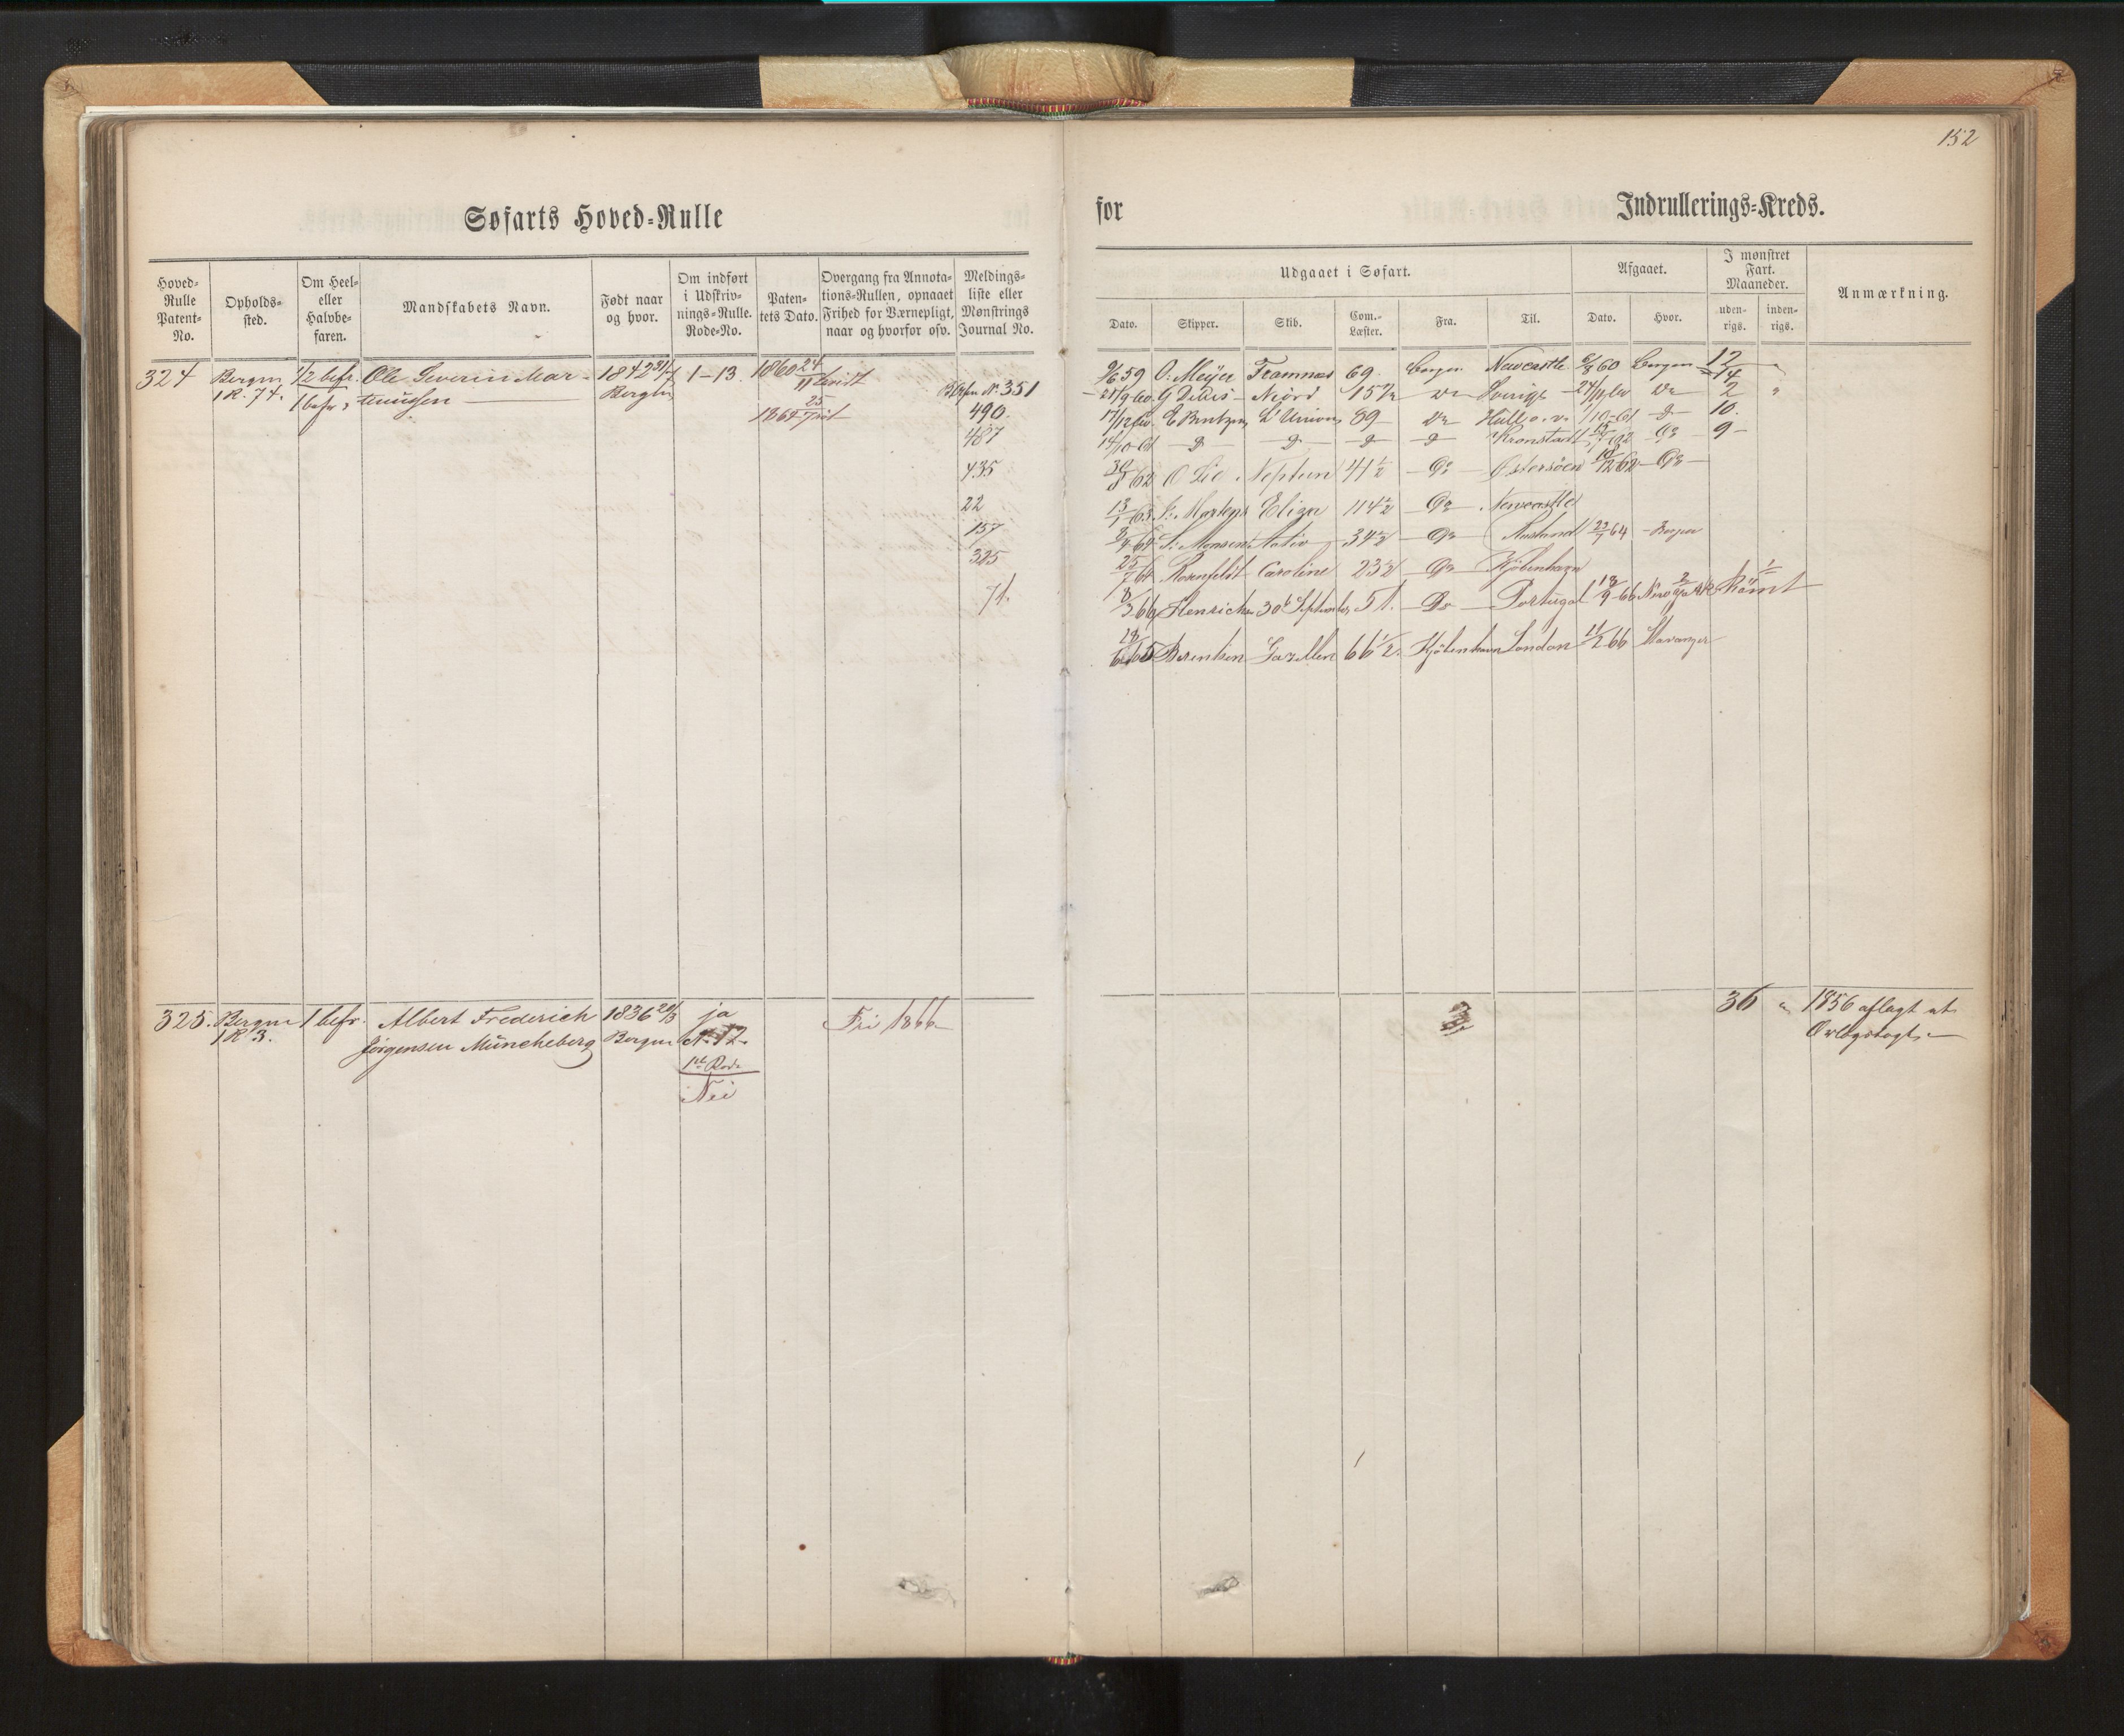 152
Søfarts Hoved-Rulle
for Indrullerings-Kreds.
Hoved-Rulle Patent-No.
Opholds-sted.
Om Heel- eller Halvbe-faren.
Mandskabets Navn.
Født naar og hvor.
Om indført i Udskriv-nings-Rulle. Rode-No.
Paten-tets Dato.
Overgang fra Annota-tions-Rullen, opnaaet Frihed for Værnepligt, naar og hvorfor osv.
Meldings-liste eller Mønstrings Journal No.
Udgaaet i Søfart.
Afgaaet.
I mønstret Fart. Maaneder.
Anmærkning.
Dato. Skipper. Skib. Com.-Læster. Fra. Til. Dato. Hvor. uden-rigs. inden-rigs.
324 Bergen 1/2 befr. Ole Severin Mar- 1842 31/7 1-13. 1860 24/11
1 R. 74. 1 befr. tinussen Bergen 1864 25/7
No. 351
490.
487
435
22
157
325
71.
9/6 59 O. Meyer Framnæs 69. Bergen Newcastle 6/8 60 Bergen 12
21/9 60 Niord 15 1/2 Do Sverige Do 2 "
17/12 60 E Berntzen L'Union 89 Do Hull 1/10-61 10.
14/10 61 Kronstadt 9
30/8 62 O Lie Neptun 41 1/2 Do Østersøen 10/12 62 Do
13/1 63 Martens Eliza 114 1/2 Do Newcastle
8/4 64 Monsen Do Rusland 23/7 64 Bergen
25/7 64 Rosenfeldt Caroline 23 1/2 Do Kjøbenhavn
8/3 66 Henrichsen 30te September 51. Do Portugal 18/9 66 Rømt
Berentsen Gazellen 66 1/2. Kjøbenhavn London 11/2 66 Stavanger
325. Bergen 1 befr. Albert Frederich 1836 20/3 ja Fri 1866 36 " 1856 aflagt et
1 R 3. Jørgensen Müncheberg Bergen No. 12. Orlogstogt.
1ste Rode
Nei